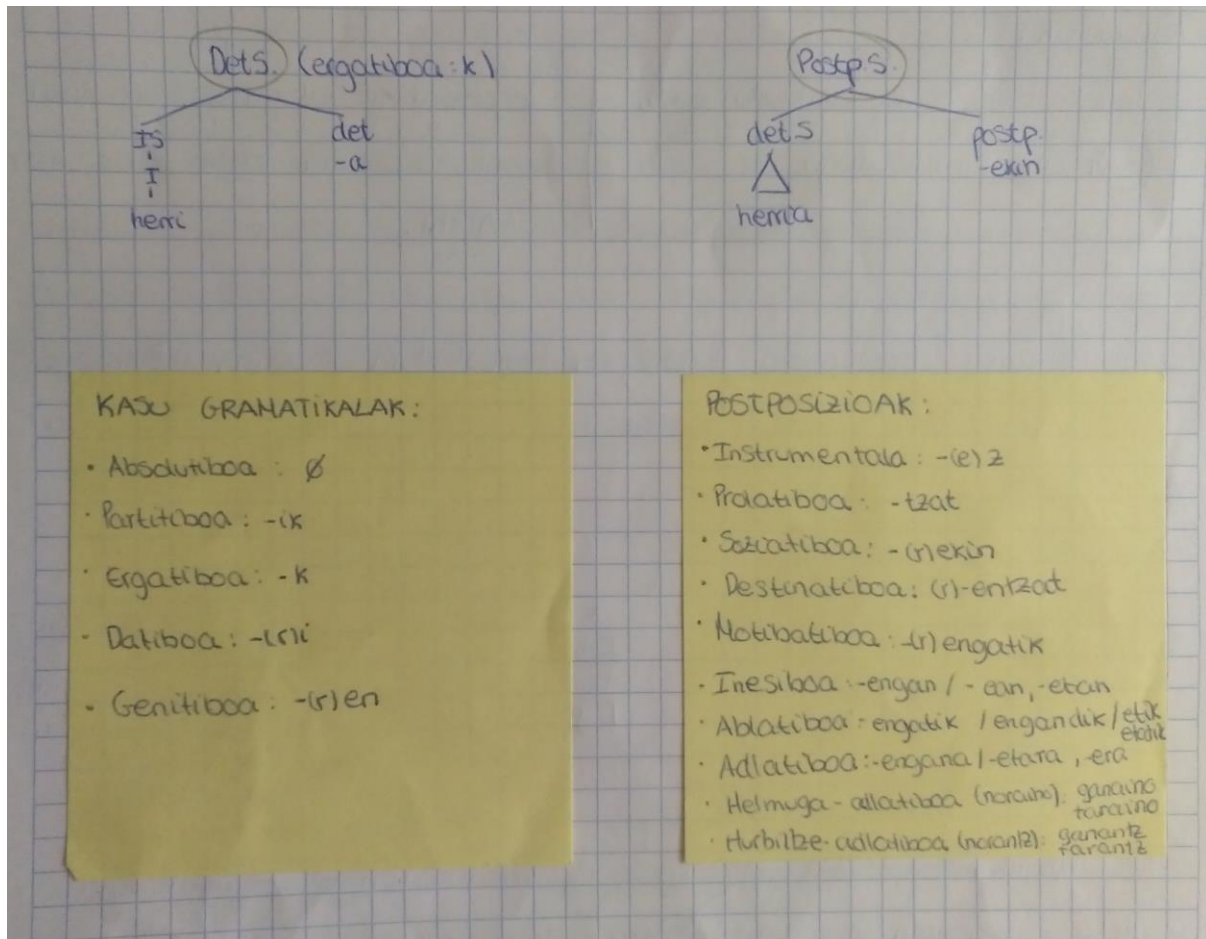 Det S. (ergatiboa: k)
IS
I
herri
det
-a
Postp. S.
det S
herria
postp.
-ekin
KASU GRAMATIKALAK:
• Absolutiboa: ø
• Partitiboa: -ik
• Ergatiboa: -k
• Datiboa: -(r)i
• Genitiboa: -(r)en
POSTPOSIZIOAK:
• Instrumentala: -(e)z
• Prolatiboa: -tzat
• Soziatiboa: -(r)ekin
• Destinatiboa: (r)-entzat
• Motibatiboa: -(r)engatik
• Inesiboa: -engan / -ean, -etan
• Ablatiboa: -engatik / engandik / etik
etatik
• Adlatiboa: -engana / -etara, era
• Helmuga-adlatiboa (noraino): ganaino
taraino
• Hurbiltze-adlatiboa (norantz): ganantz
rarantz